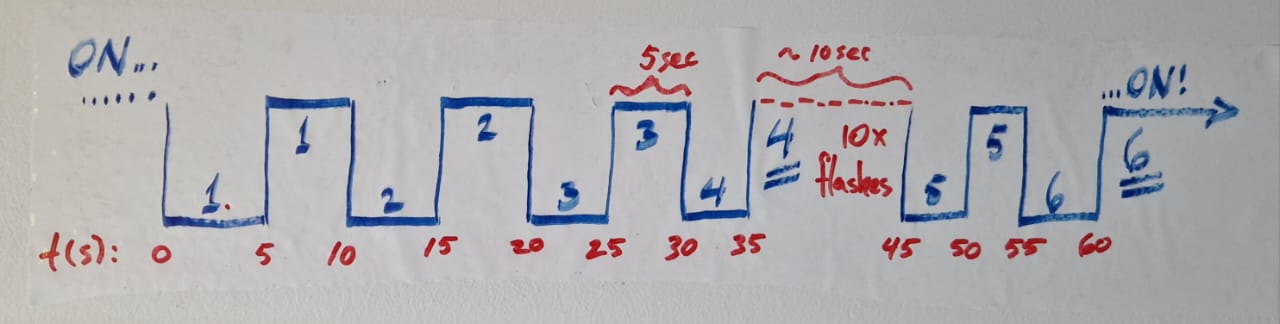 ON...
5sec
~10sec
...ON!
1
2
3
4
10x
flashes
5
6
1.
2
3
4
5
6
t(s): 0 5 10 15 20 25 30 35 45 50 55 60